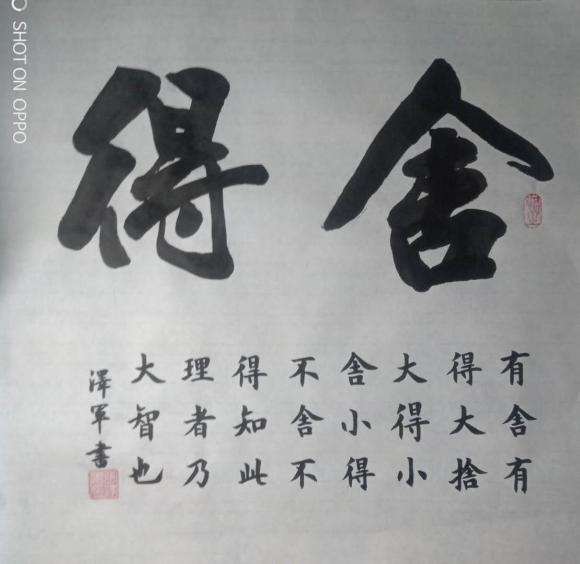 舍得
有舍有
得大捨
大得小
舍小得
不舍不
得知此
理者乃
大智也
澤軍書
SHOT ON OPPO